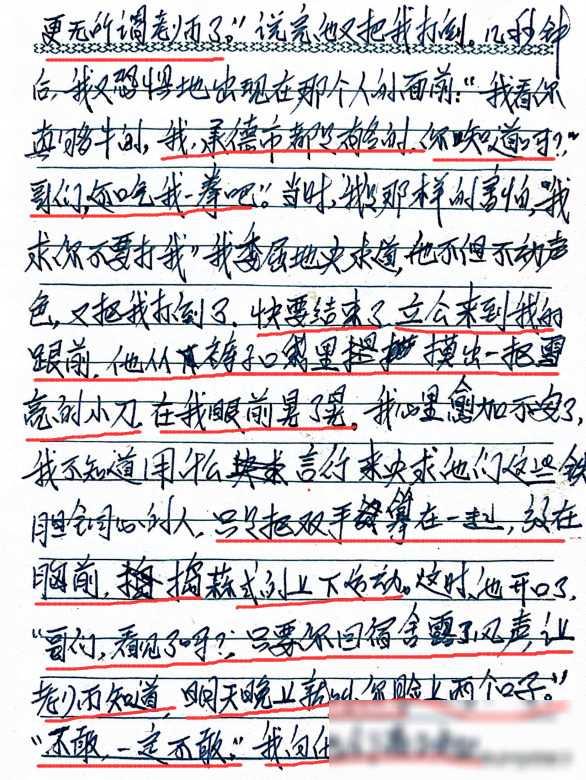 更无所谓老师了。”说完他又把我打倒。几秒钟
后，我又恐惧地出现在那个人的面前：“我看你
真够牛的，我，承德市都没有名的，你知道吗？”
哥们，还吃我一拳吧”。当时，我是那样的害怕，“我
求你不要打我”我委屈地央求道，他不但不动声
色，又把我打倒了。快要结束了，立会来到我的
跟前，他从裤子口袋里摸出一把雪
亮的小刀，在我眼前晃了晃。我心里愈加不安了，
我不知道用什么言行来央求他们这些铁
胆铜心的人，只是把双手攥在一起，放在
胸前，捣蒜式的上下运动。这时，他开口了，
“哥们，看见了吗？只要你回宿舍露了风声，让
老师知道，明天晚上就叫你脸上两个口子。”
“不敢，一定不敢。”我向